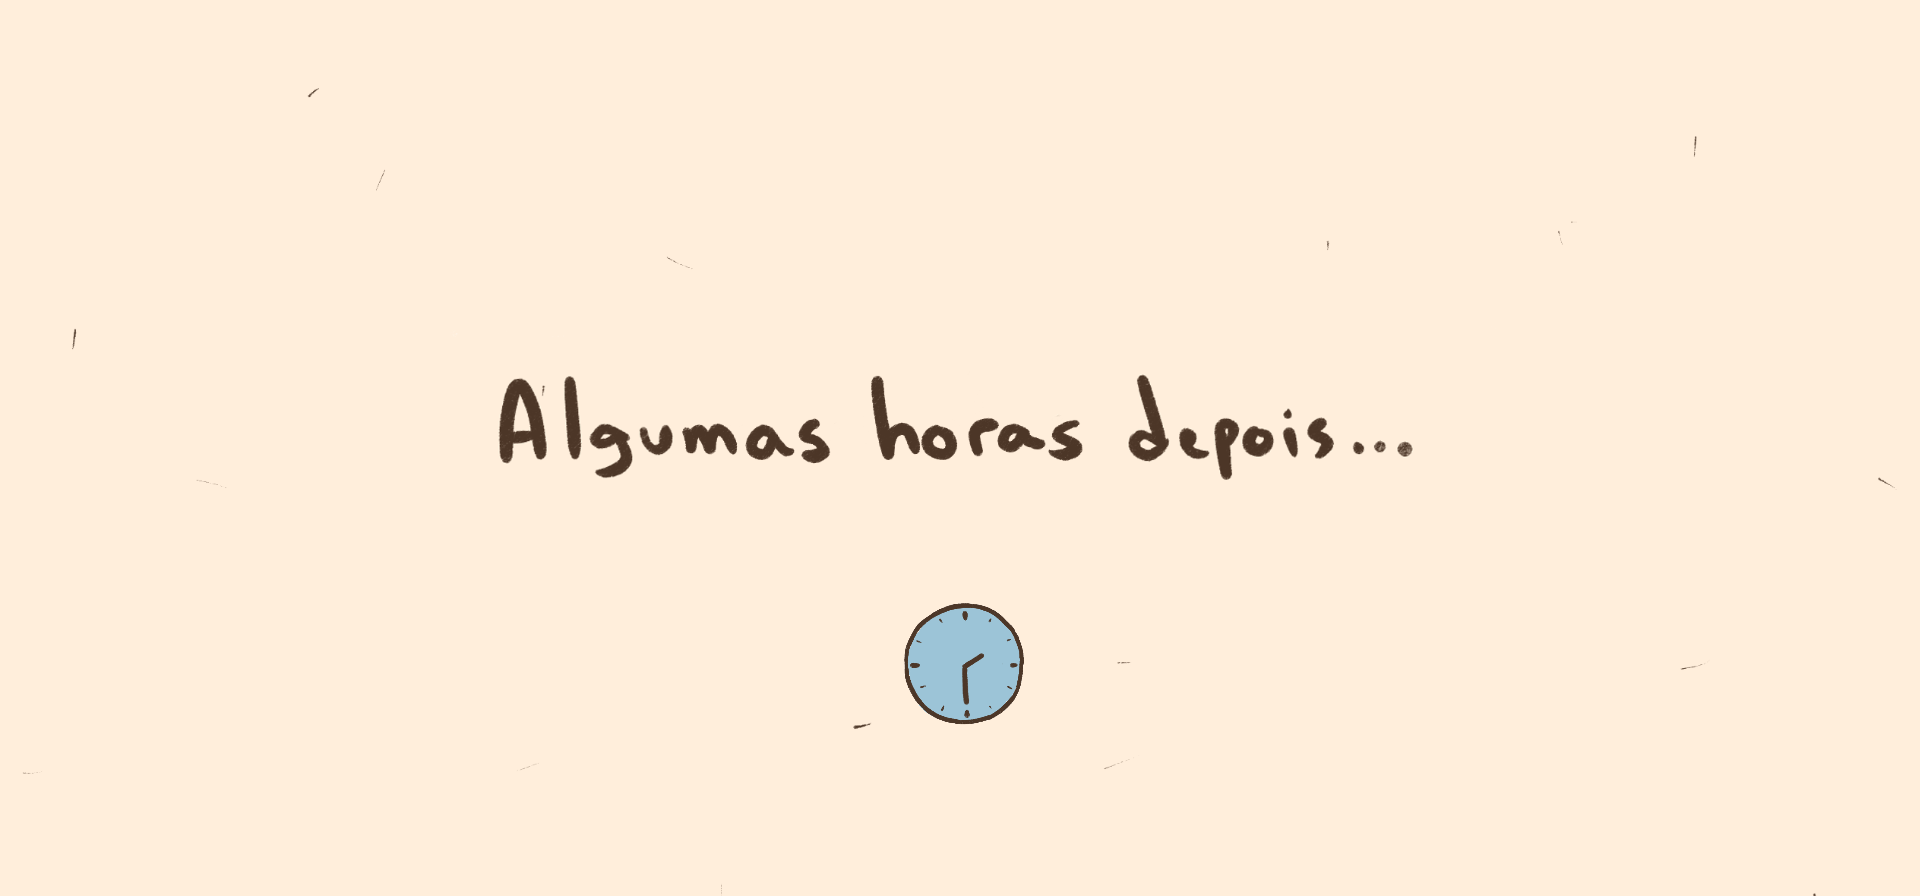 Algumas horas depois...